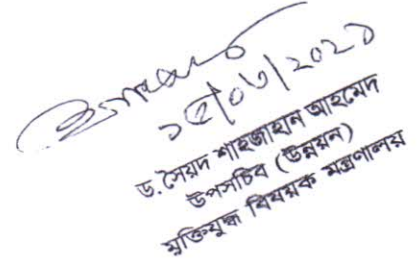 ১৫/০৬/২০২১
ড. সৈয়দ শাহজাহান আহমেদ
উপসচিব (উন্নয়ন)
মুক্তিযুদ্ধ বিষয়ক মন্ত্রণালয়